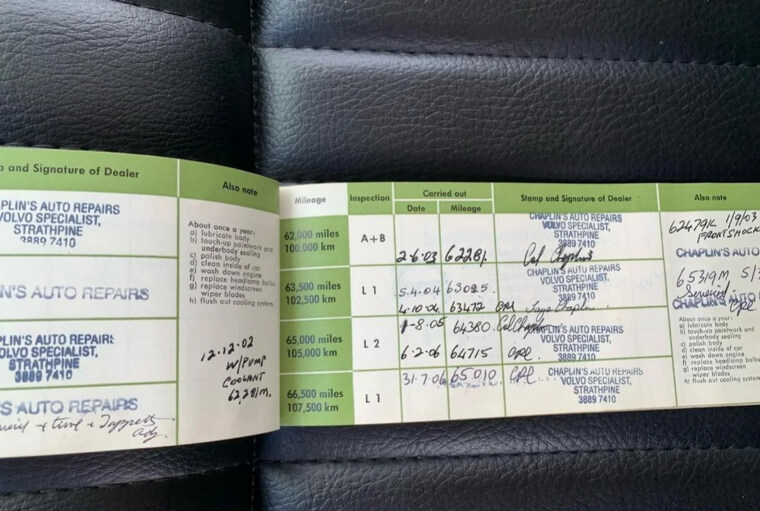 p and Signature of Dealer
Also note
APLIN'S AUTO REPAIRS
VOLVO SPECIALIST,
STRATHPINE
3889 7410
N'S AUTO REPAIRS
APLIN'S AUTO REPAIRS
OLVO SPECIALIST,
STRATHPINE
3889 7410
S AUTO REPAIRS
+ tune + Tappets
adj.
About once a year:
a) lubricate body
b) touch-up paintwork and
underbody sealing
c) polish body
d) clean inside of car
e) wash down engine
f) replace headlamp bulbs
g) replace windscreen
wiper blades
h) flush out cooling system
12.12.02
W/PUMP
COOLANT
62,281M.
Mileage
Inspection
Carried out
Date
Mileage
Stamp and Signature of Dealer
Also note
62,000 miles
100,000 km
A+B
2.6.03 62281.
CHAPLIN'S AUTO REPAIRS
VOLVO SPECIALIST,
STRATHPINE
3889 7410
Cal Chaplin
62479K 1/9/03
FRONT SHOCK
CHAPLIN'S AUTO
63,500 miles
102,500 km
L 1
5.4.04 63025.
4.10.04 63472
CHAPLIN'S AUTO REPAIRS
VOLVO SPECIALIST,
STRATHPINE
3889 7410
Chaplin
65319M 5/3
Serviced
CHAPLIN'S AUTO
65,000 miles
105,000 km
L 2
1-8.05 64380
6.2.06 64715
AUTO REPAIRS
VOLVO SPECIALIST,
STRATHPINE
3889 7410
About once a year:
a) lubricate body
b) touch-up paintwork and
underbody sealing
c) polish body
d) clean inside of car
e) wash down engine
f) replace headlamp bulbs
g) replace windscreen
wiper blades
h) flush out cooling system
66,500 miles
107,500 km
L 1
31.7.06 65010
CHAPLIN'S AUTO REPAIRS
VOLVO SPECIALIST,
STRATHPINE
3889 7410